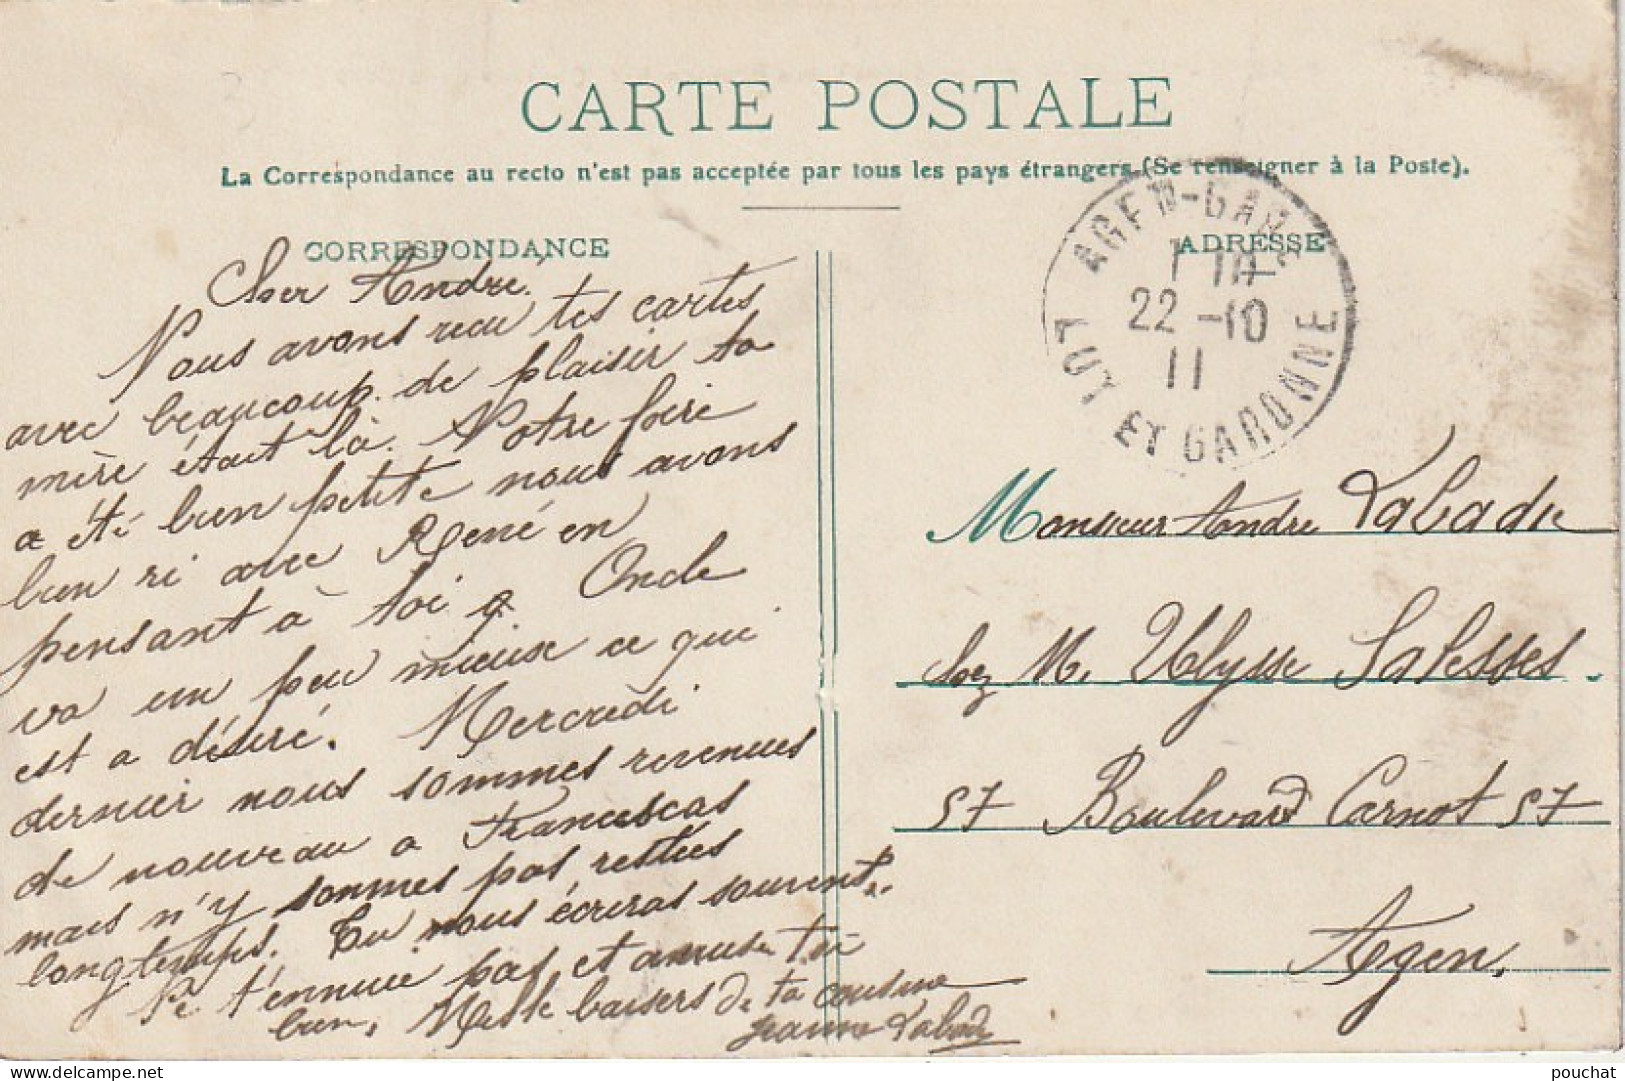 CARTE POSTALE
La Correspondance au recto n'est pas acceptée par tous les pays étrangers. (Se renseigner à la Poste).
CORRESPONDANCE
ADRESSE
AGEN-GARE
22 -10
11
LOT ET GARONNE
Cher André.
Nous avons reçu tes cartes
avec beaucoup de plaisir ta
mère était là. Notre foire
a été bien petite nous avons
bien ri avec René en
pensant à toi. Oncle
va un peu mieux ce qui
est a désiré. Mercredi
dernier nous sommes revenues
de nouveau a Francescas
mais n'y sommes pas restées
longtemps. Tu nous écriras souvent.
Ne t'ennuie pas et amuse toi
bien. Mille baisers de ta cousine
Jeanne Labadie
Monsieur Andre Labadie
chez M. Ulysse Salesses.
57 Boulevard Carnot 57
Agen.
pouchat
delcampe.net